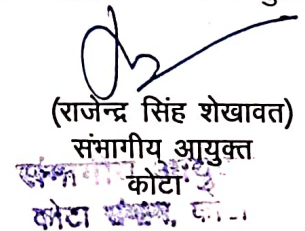 (राजेन्द्र सिंह शेखावत)
संभागीय आयुक्त
कोटा
कोटा संभाग,